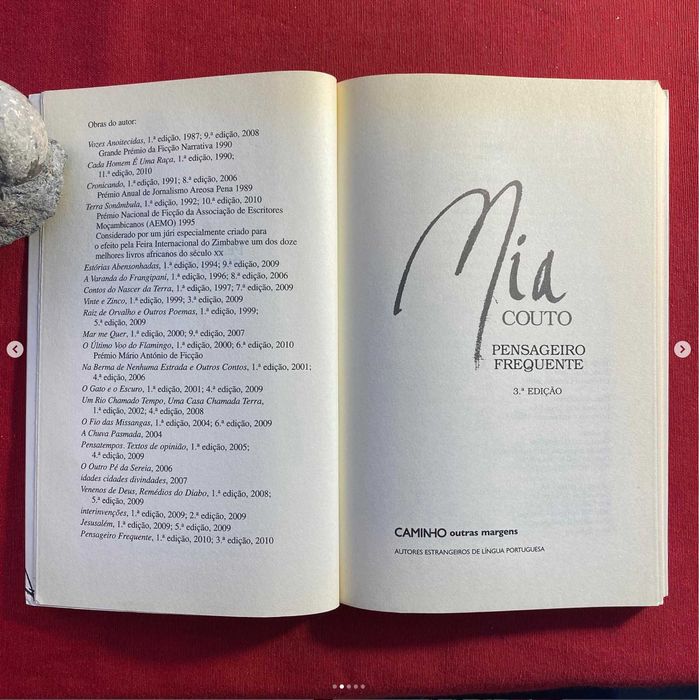 Obras do autor:
Vozes Anoitecidas, 1.ª edição, 1987; 9.ª edição, 2008
Grande Prémio da Ficção Narrativa 1990
Cada Homem É Uma Raça, 1.ª edição, 1990;
11.ª edição, 2010
Cronicando, 1.ª edição, 1991; 8.ª edição, 2006
Prémio Anual de Jornalismo Areosa Pena 1989
Terra Sonâmbula, 1.ª edição, 1992; 10.ª edição, 2010
Prémio Nacional de Ficção da Associação de Escritores
Moçambicanos (AEMO) 1995
Considerado por um júri especialmente criado para
o efeito pela Feira Internacional do Zimbabwe um dos doze
melhores livros africanos do século xx
Estórias Abensonhadas, 1.ª edição, 1994; 9.ª edição, 2009
A Varanda do Frangipani, 1.ª edição, 1996; 8.ª edição, 2006
Contos do Nascer da Terra, 1.ª edição, 1997; 7.ª edição, 2009
Vinte e Zinco, 1.ª edição, 1999; 3.ª edição, 2009
Raiz de Orvalho e Outros Poemas, 1.ª edição, 1999;
5.ª edição, 2009
Mar me Quer, 1.ª edição, 2000; 9.ª edição, 2007
O Último Voo do Flamingo, 1.ª edição, 2000; 6.ª edição, 2010
Prémio Mário António de Ficção
Na Berma de Nenhuma Estrada e Outros Contos, 1.ª edição, 2001;
4.ª edição, 2006
O Gato e o Escuro, 1.ª edição, 2001; 4.ª edição, 2009
Um Rio Chamado Tempo, Uma Casa Chamada Terra,
1.ª edição, 2002; 4.ª edição, 2008
O Fio das Missangas, 1.ª edição, 2004; 6.ª edição, 2009
A Chuva Pasmada, 2004
Pensatempos. Textos de opinião, 1.ª edição, 2005;
4.ª edição, 2009
O Outro Pé da Sereia, 2006
idades cidades divindades, 2007
Venenos de Deus, Remédios do Diabo, 1.ª edição, 2008;
5.ª edição, 2009
interinvenções, 1.ª edição, 2009; 2.ª edição, 2009
Jesusalém, 1.ª edição, 2009; 5.ª edição, 2009
Pensageiro Frequente, 1.ª edição, 2010; 3.ª edição, 2010
Mia
COUTO
PENSAGEIRO
FREQUENTE
3.ª EDIÇÃO
CAMINHO outras margens
AUTORES ESTRANGEIROS DE LÍNGUA PORTUGUESA